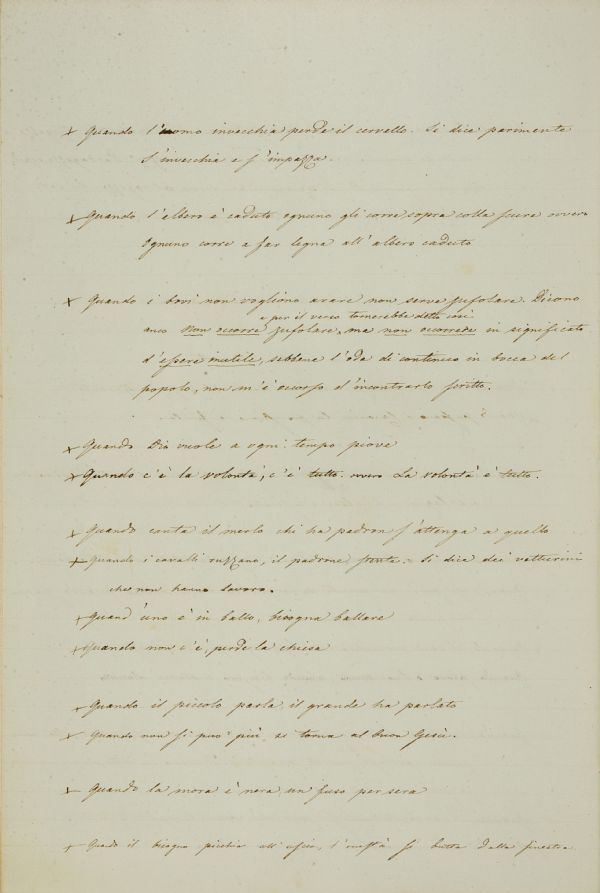 + Quando l'uomo invecchia perde il cervello. Si dice parimente
S'invecchia e s'impazza.
+ Quando l'albero è caduto ognuno gli corre sopra colla scure ovvero
Ognuno corre a far legna all'albero caduto
+ Quando i bovi non vogliono arare non serve zufolare. Dicono
e per il verso tornerebbe detto così
anco Non occorre zufolare, ma non occorrere in significato
d'essere inutile, sebbene l'oda di continuo in bocca del
popolo, non m'è occorso d'incontrarlo scritto.
+ Quando Dio vuole a ogni tempo piove
+ Quando c'è la volontà, c'è tutto. ovvero La volontà è tutto.
+ Quando canta il merlo chi ha padron s'attenga a quello
+ Quando i cavalli ruzzano, il padrone stenta. Si dice dei vetturini
che non hanno lavoro.
+ Quand'uno è in ballo, bisogna ballare
+ Quando non c'è, perde la chiesa
+ Quando il piccolo parla, il grande ha parlato
+ Quando non si può più, si torna al buon Gesù.
+ Quando la mora è nera un fuso per sera
+ Quando il bisogno picchia all'uscio, l'onestà si butta dalla finestra